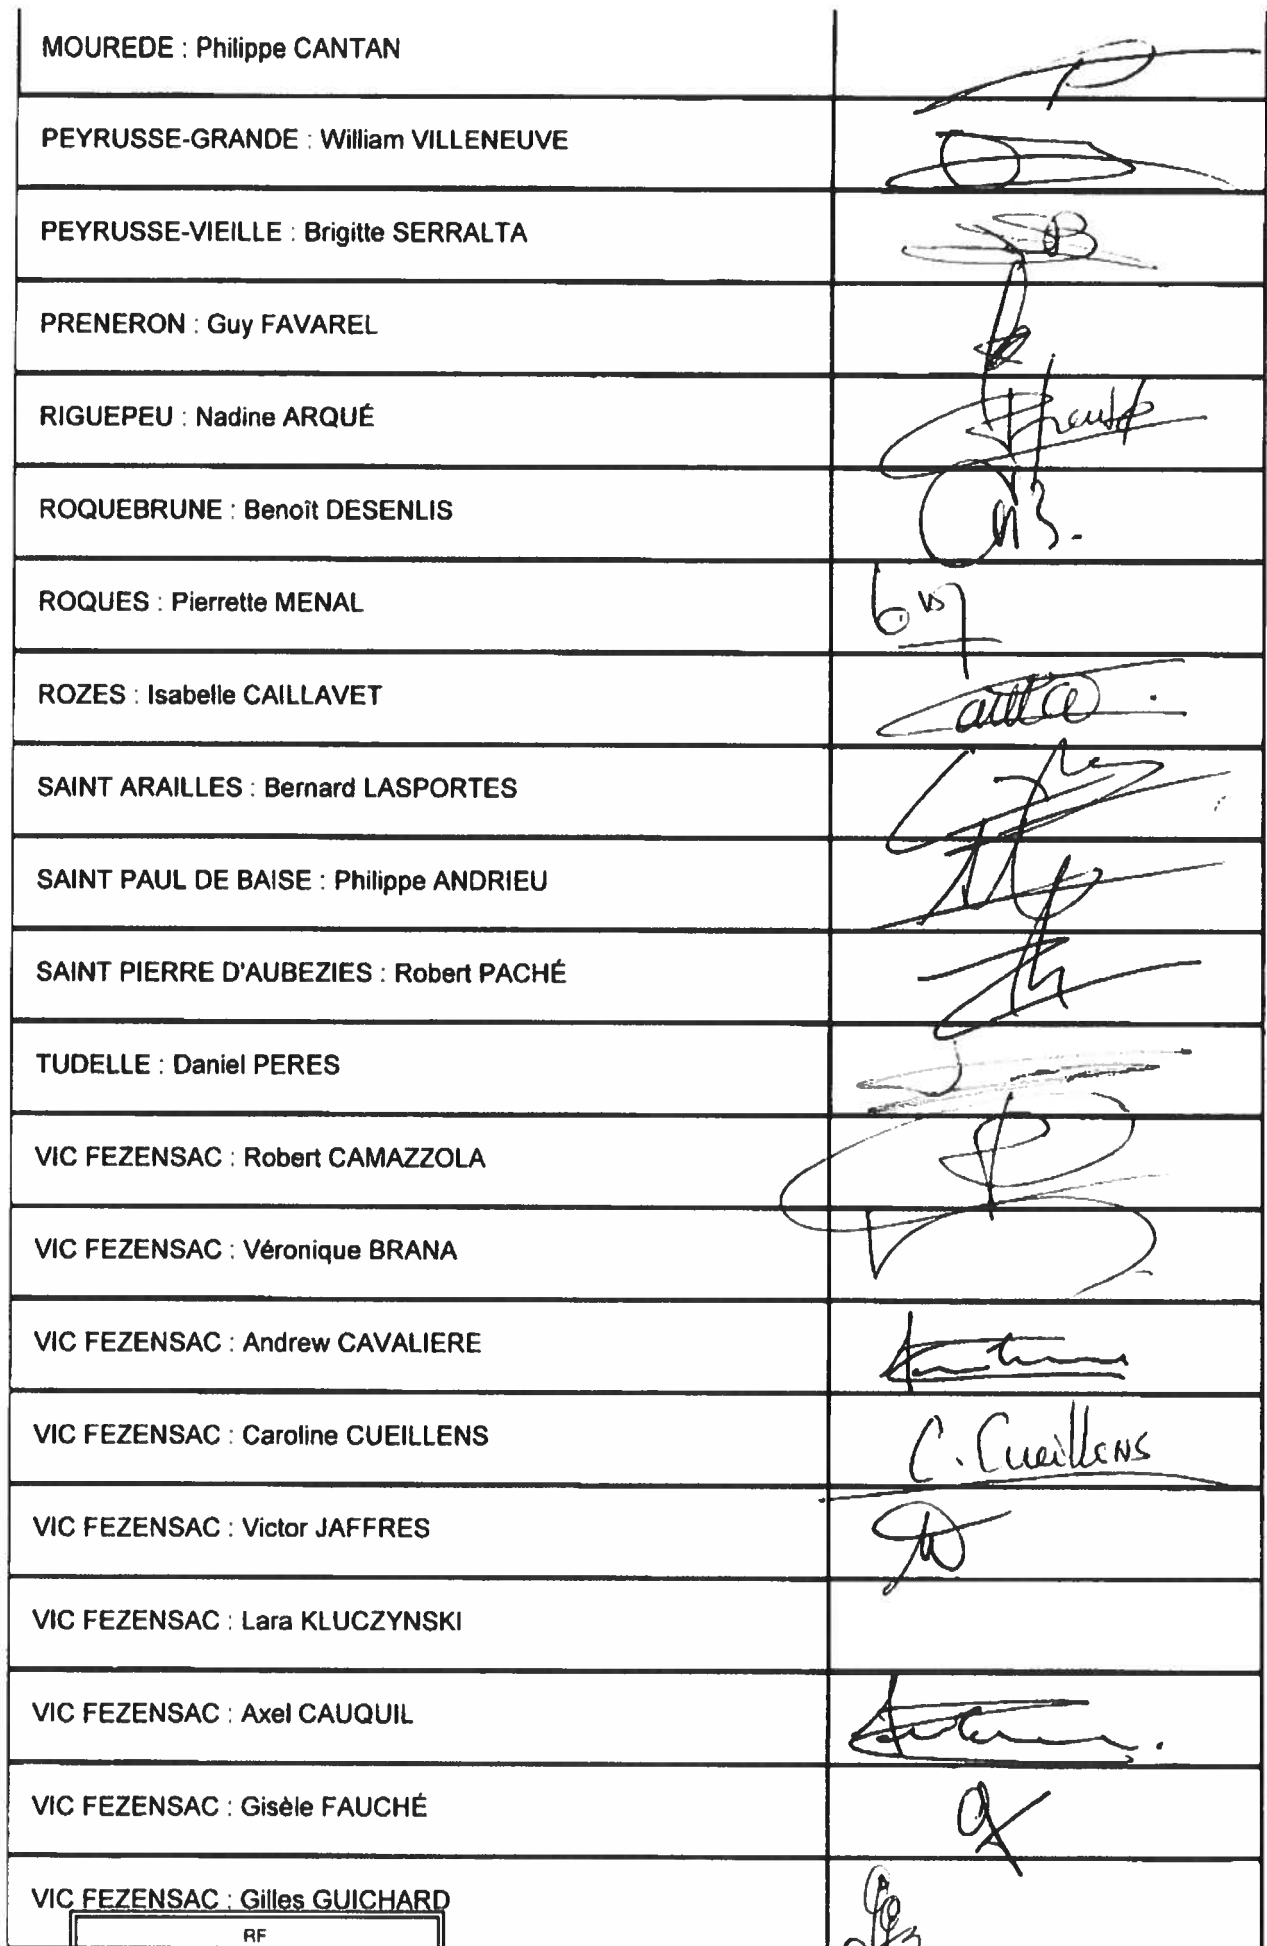 MOUREDE : Philippe CANTAN
PEYRUSSE-GRANDE : William VILLENEUVE
PEYRUSSE-VIEILLE : Brigitte SERRALTA
PRENERON : Guy FAVAREL
RIGUEPEU : Nadine ARQUÉ
ROQUEBRUNE : Benoît DESENLIS
ROQUES : Pierrette MENAL
ROZES : Isabelle CAILLAVET
SAINT ARAILLES : Bernard LASPORTES
SAINT PAUL DE BAISE : Philippe ANDRIEU
SAINT PIERRE D'AUBEZIES : Robert PACHÉ
TUDELLE : Daniel PERES
VIC FEZENSAC : Robert CAMAZZOLA
VIC FEZENSAC : Véronique BRANA
VIC FEZENSAC : Andrew CAVALIERE
VIC FEZENSAC : Caroline CUEILLENS C. Cueillens
VIC FEZENSAC : Victor JAFFRES
VIC FEZENSAC : Lara KLUCZYNSKI
VIC FEZENSAC : Axel CAUQUIL
VIC FEZENSAC : Gisèle FAUCHÉ
VIC FEZENSAC : Gilles GUICHARD
RF